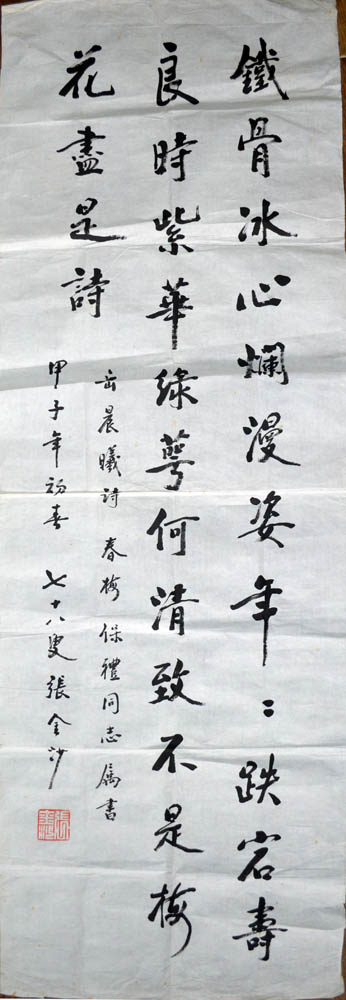 鐵骨冰心爛漫姿年：跌宕壽
良時紫華綠萼何清致不是梅
花盡是詩
岳晨曦詩 春梅保禮同志屬書
甲子年初春 七十八叟張金沙